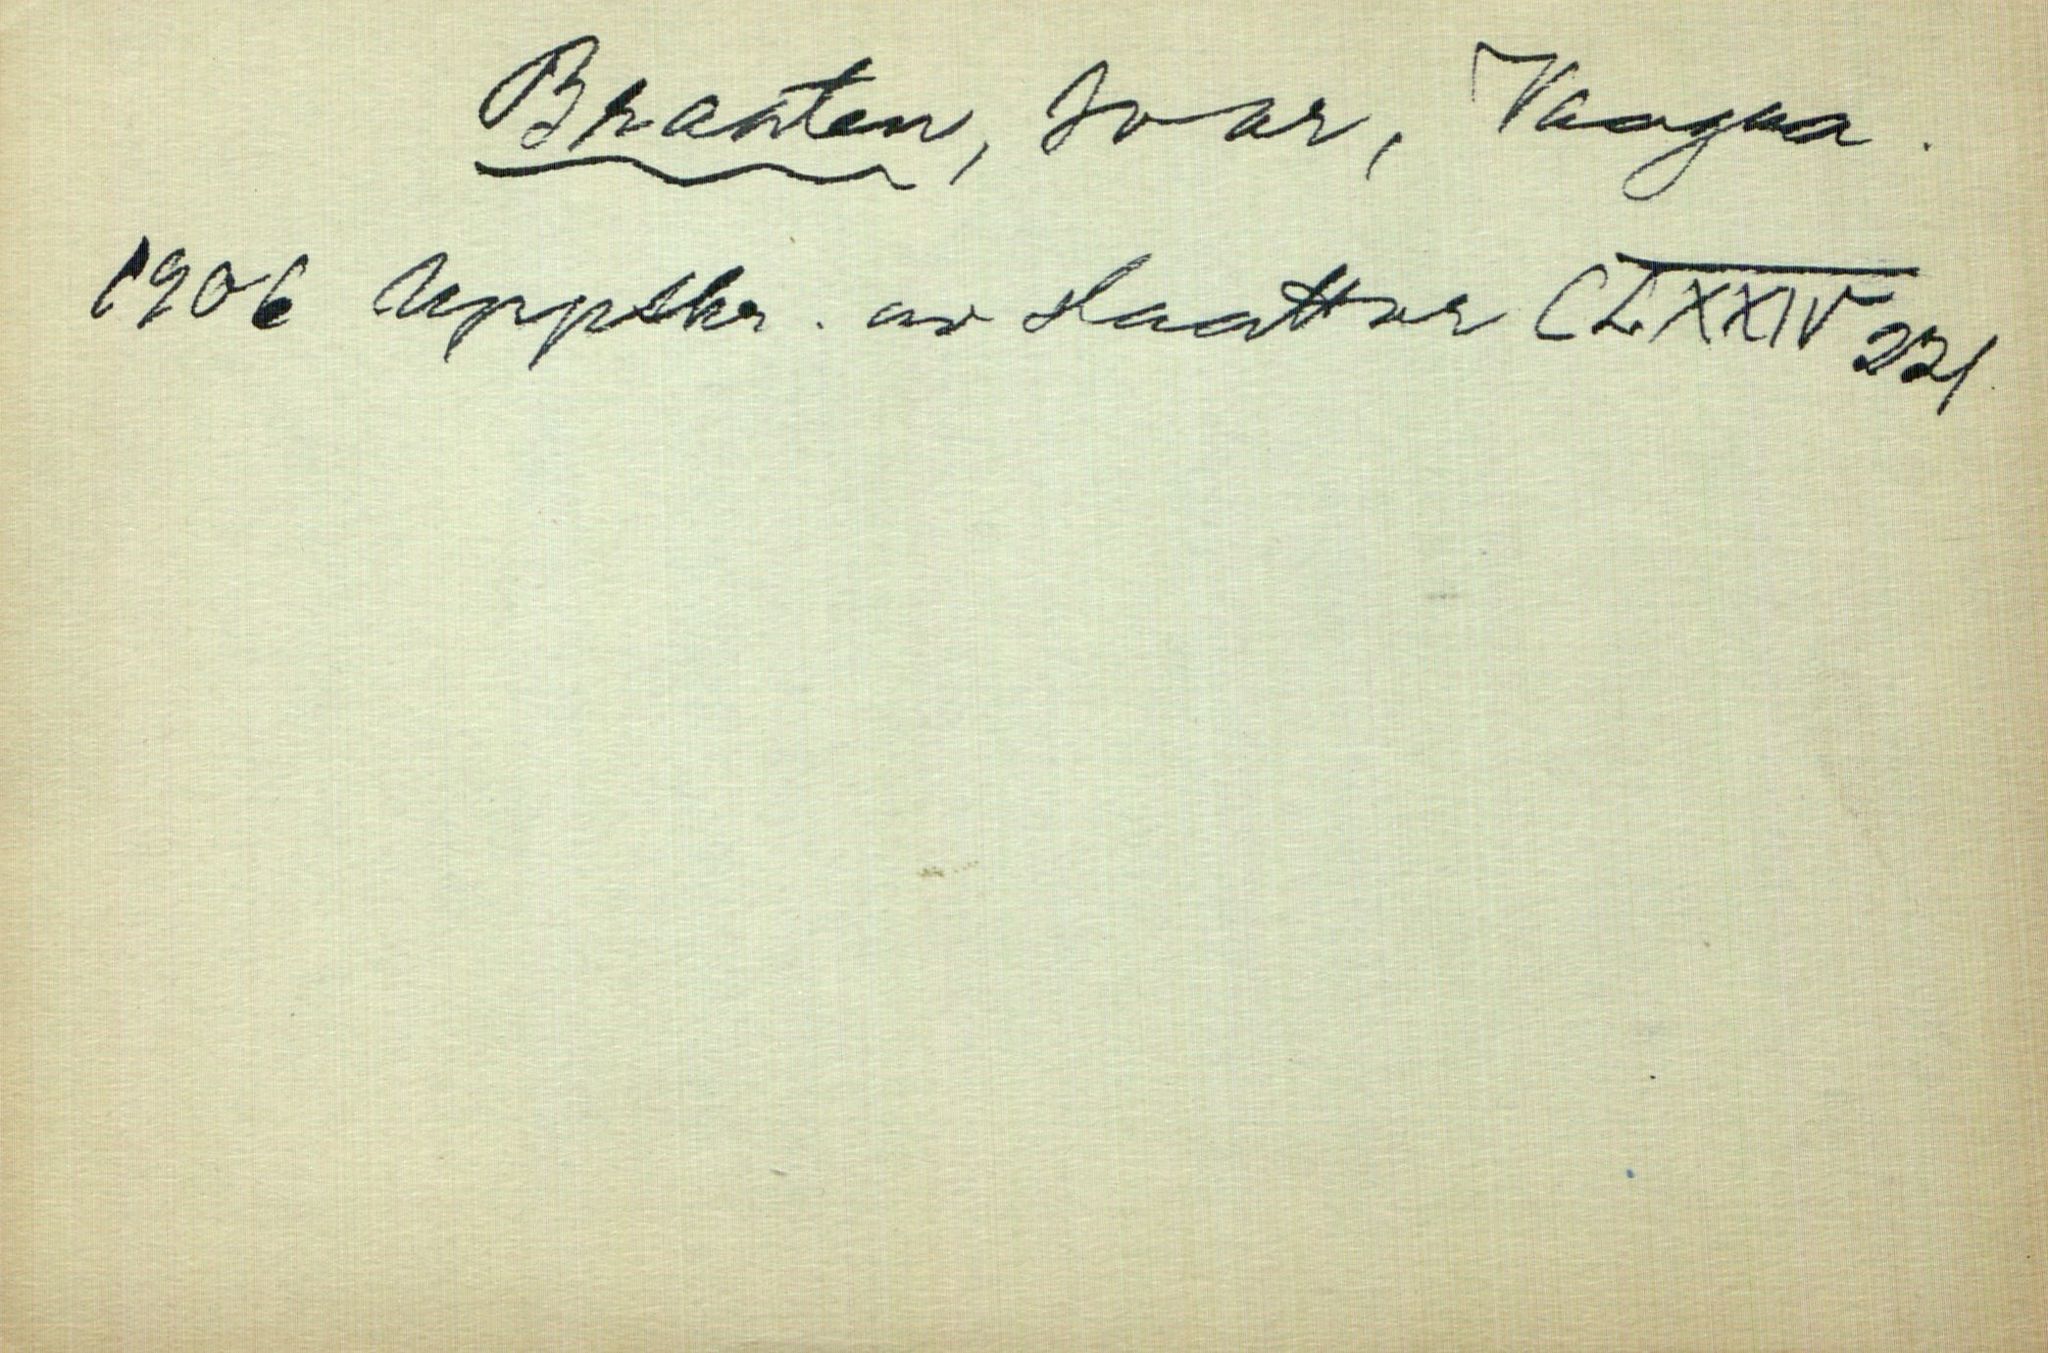 Braaten, Ivar, Vaagaa.
1906 Uppskr. av slaattar CLXXIV 221